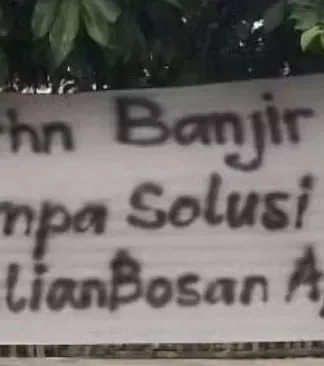 hn Banjir
mpa Solusi
lianBosan A